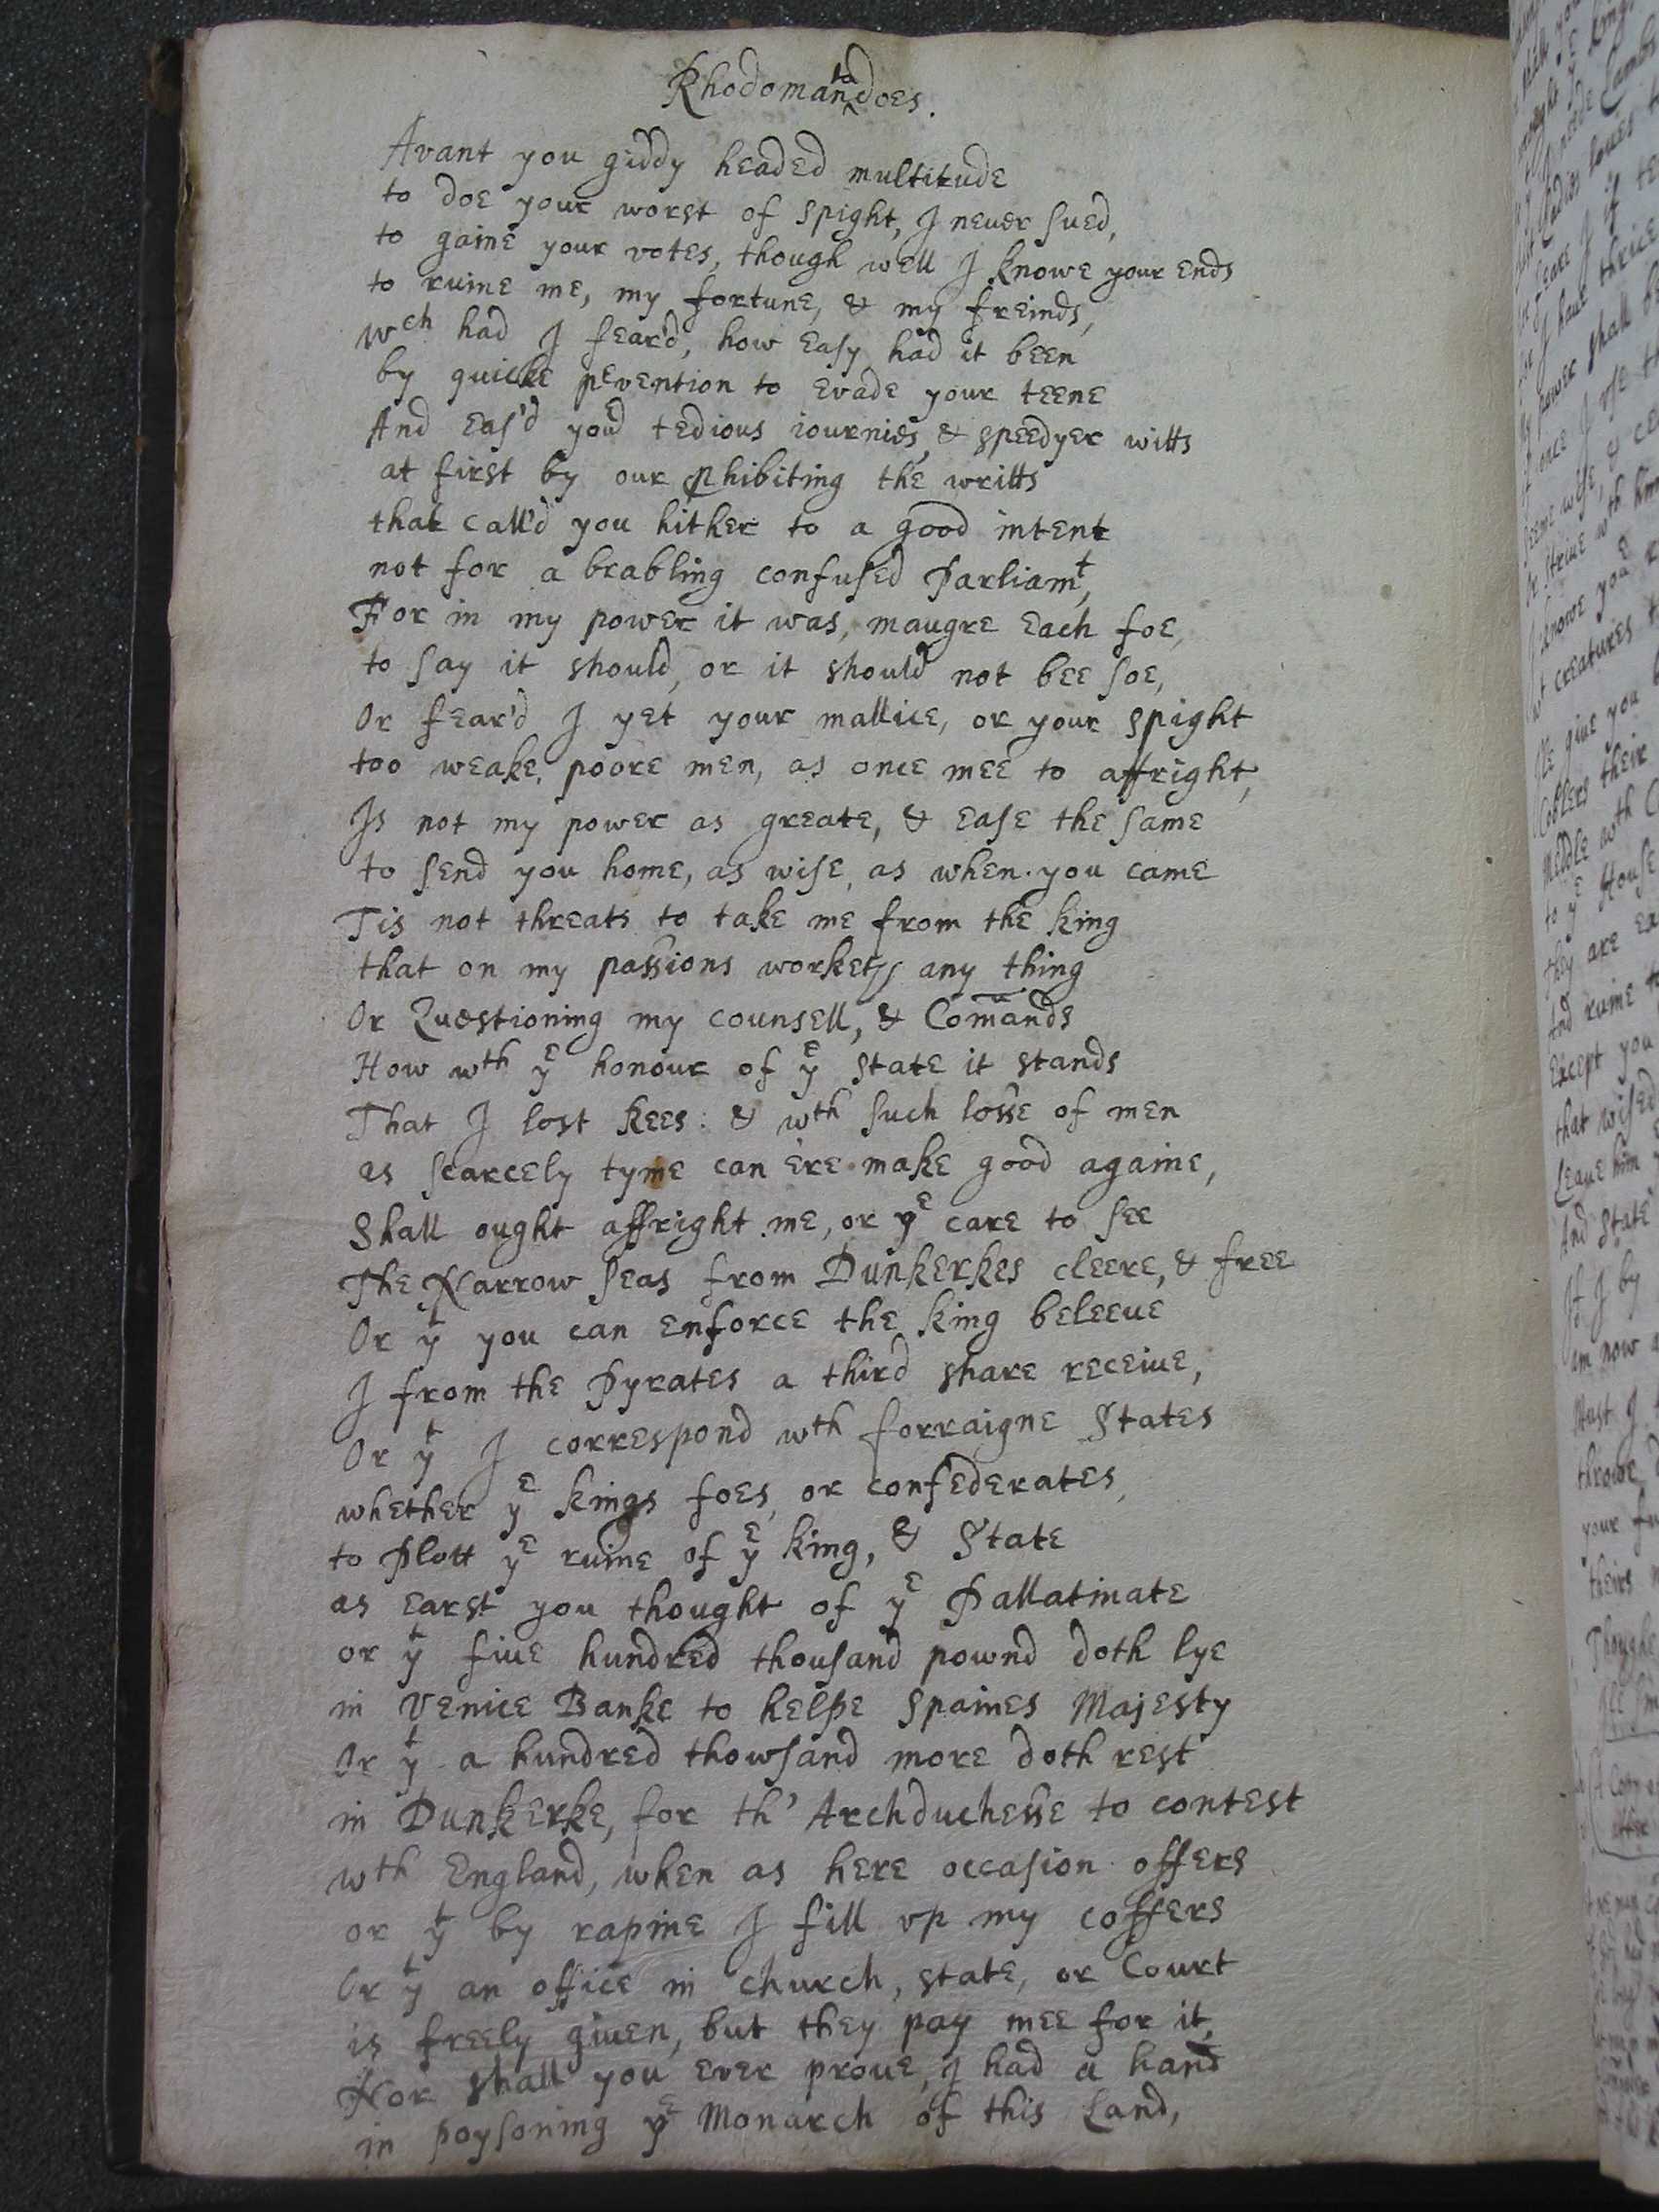 Rhodomantadoes.
Avant you giddy headed multitude
to doe your worst of spight, I never sued,
to gaine your votes, though well I knowe your ends
to ruine me, my fortune, & my freinds,
wch had I fear'd, how easy had it been
by quicke pevention to evade your teene
And eas'd your tedious iournies, & speedyer witts
at first by our phibiting the writts
that call'd you hither to a good intent
not for a brabling confused Parliamt,
For in my power it was, maugre each foe,
to say it should, or it should not bee soe,
Or fear'd I yet your mallice, or your spight
too weake, poore men, as once mee to affright,
Is not my power as greate, & ease the same
to send you home, as wise, as when you came
Tis not threats to take me from the king
that on my passions worketh any thing
Or Questioning my counsell, & Comands
How wth ye honour of ye state it stands
That I lost Rees: & wth such losse of men
as scarcely tyme can ere make good againe,
Shall ought affright me, or ye care to see
The Narrow seas from Dunkerkes cleere, & free
Or yt you can enforce the king beleeue
I from the Pyrates a third share receiue,
Or yt I correspond wth forraigne States
whether ye kings foes, or confederates,
to Plott ye ruine of ye king, & State
as earst you thought of ye Pallatinate
or yt fiue hundred thousand pownd doth lye
in Venice Banke to helpe Spaines Majesty
Or yt a hundred thowsand more doth rest
in Dunkerke, for th' Archduchesse to contest
wth England, when as here occasion offers
or yt by rapine I fill vp my coffers
Or yt an office in church, state, or Court
is freely given, but they pay mee for it,
Nor shall you ever proue, I had a hand
in poysoning ye Monarch of this Land,